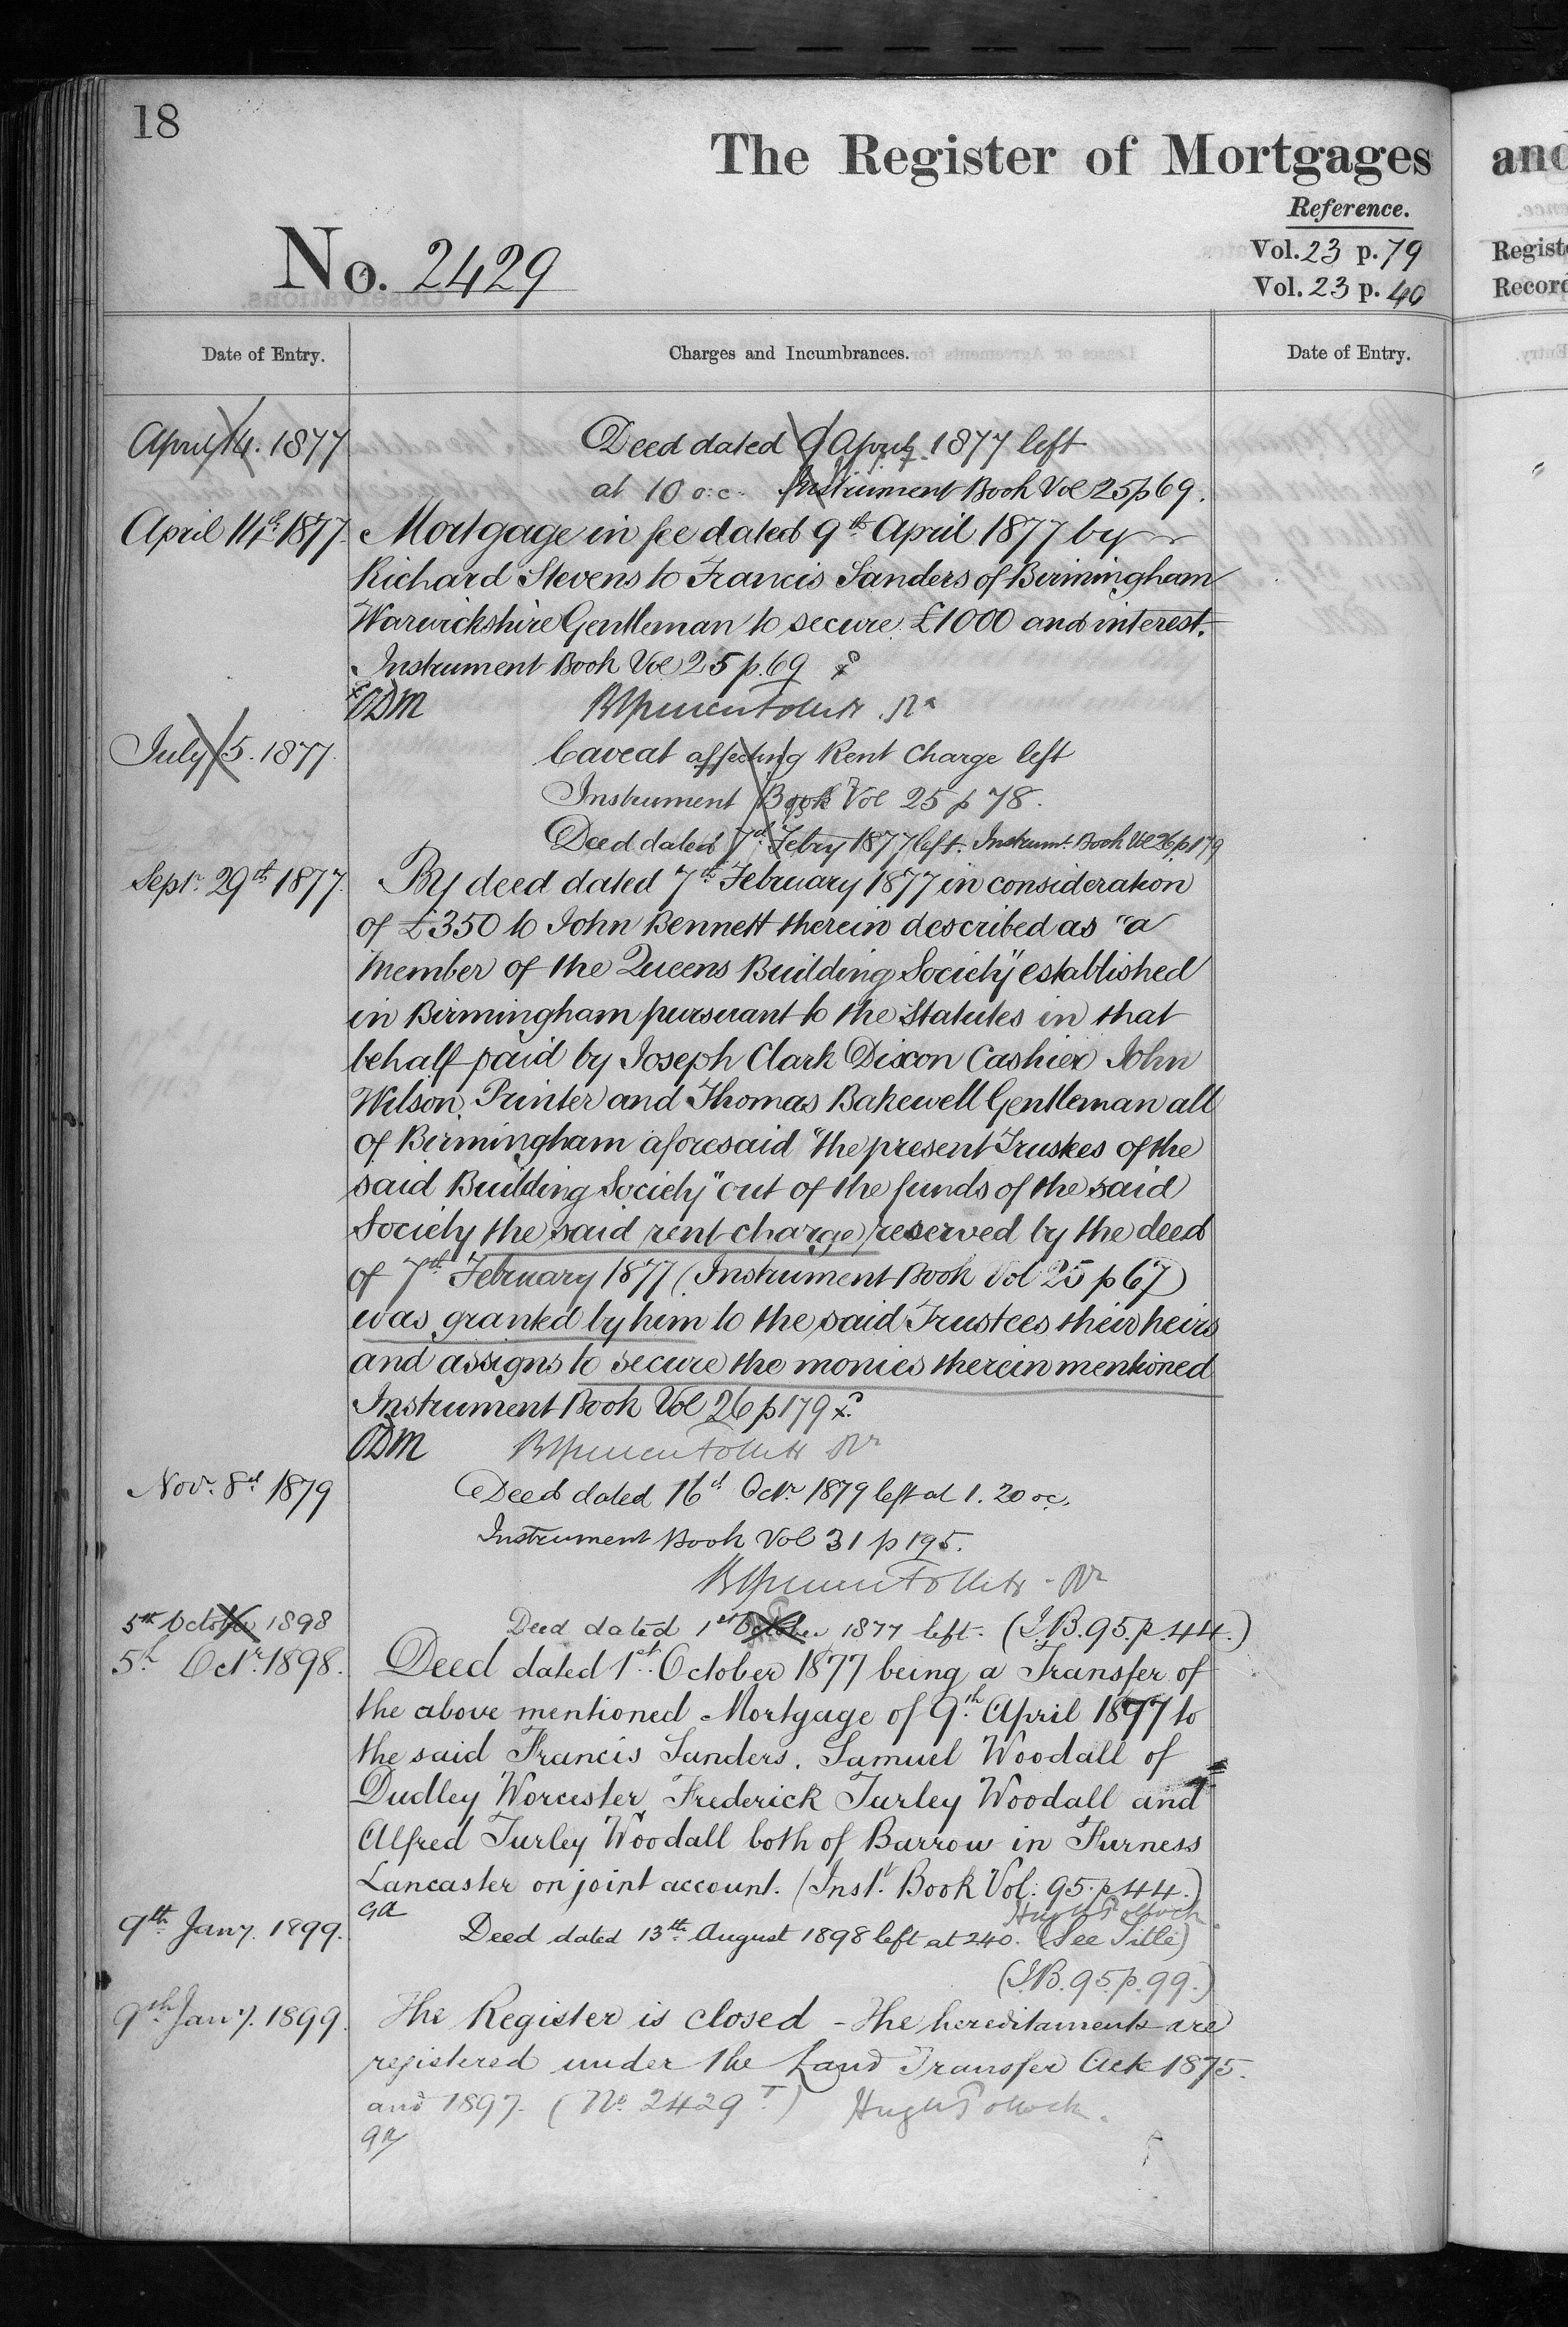 18
The Register of Mortgages
Reference.
No. 2429
Vol. 23 p. 79
Vol. 23 p. 40
Date of Entry.
Charges and Incumbrances.
Date of Entry.
April 14. 1877
Deed dated 9 April 1877 left
at 10 o:c. Instrument Book Vol 25 p 69.
April 14th 1877.
Mortgage in fee dated 9th April 1877 by
Richard Stevens to Francis Sanders of Birmingham
Warwickshire Gentleman to secure £1000 and interest.
Instrument Book Vol 25 p. 69
ODM
July 5. 1877
Caveat affecting Rent Charge left
Instrument Book Vol 25 p 78.
Deed dated 7th Febry 1877 left. Instrumt. Book Vol 26 p 179
Septr. 29th 1877.
By deed dated 7th February 1877 in consideration
of £350 to John Bennett therein described as "a
"member of the Queens Building Society" established
in Birmingham pursuant to the Statutes in that
behalf paid by Joseph Clark Dixon Cashier John
Wilson Printer and Thomas Bakewell Gentleman all
of Birmingham aforesaid "the present Trustees of the
said Building Society" out of the funds of the said
Society the said rent charge reserved by the deed
of 7th February 1877 (Instrument Book Vol 25 p 67)
was granted by him to the said Trustees their heirs
and assigns to secure the monies therein mentioned
Instrument Book Vol 26 p 179
ODM
Novr. 8th 1879
Deed dated 16th Octr. 1879 left at 1.20 oc.
Instrument Book Vol 31 p 195.
5th October 1898
Deed dated 1st October 1877 left. (I.B. 95. p. 44.)
5th Octr. 1898.
Deed dated 1st October 1877 being a Transfer of
the above mentioned Mortgage of 9th April 1877 to
the said Francis Sanders. Samuel Woodall of
Dudley Worcester Frederick Turley Woodall and
Alfred Turley Woodall both of Barrow in Furness
Lancaster on joint account. (Inst. Book Vol: 95. p 44.)
Hugh Pollock
9th Jany. 1899.
Deed dated 13th August 1898 left at 2.40. (See Title)
(I.B. 95. p. 99.)
9th Jany. 1899.
The Register is closed - The hereditaments are
registered under the Land Transfer Acts 1875.
and 1897. (No. 2429 T) Hugh Pollock.
and
Regist
Record